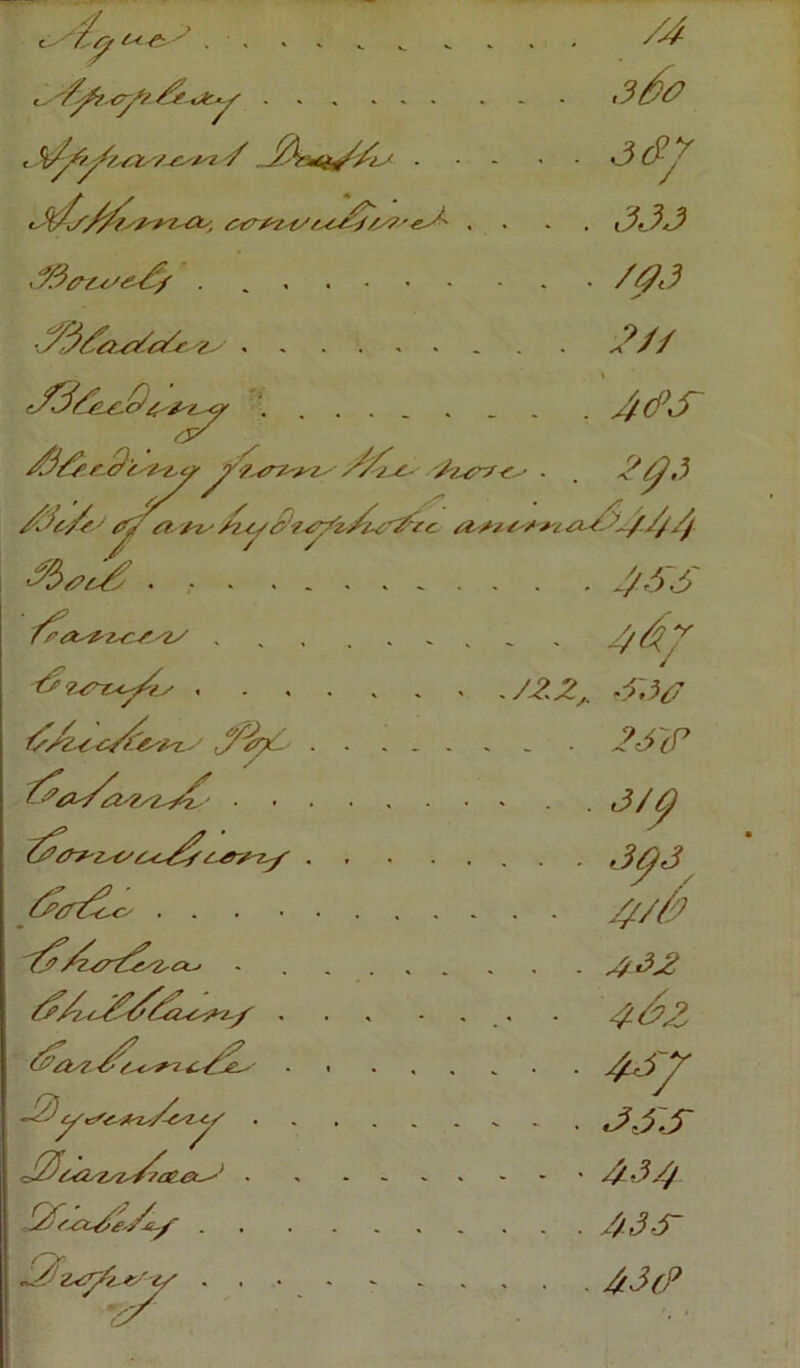 Ague . . . . . . . . . . . 14
Apoplexy . . . . . . . . . 360
Appearanced Death . . . . . 387
Asthma, convulsive . . . . 333
Bowels . . . . . . . . . . 193
Bladder . . . . . . . . . 211
Bleeding . . . . . . . . . 485
Bleeding from the nose . . 293
Bite of an hydrophobic animal 444
Boil . . . . . . . . . . . 455
Cancer . . . . . . . . . . 467
Croup . . . . . . . . 122, 530
Chicken Pox . . . . . . . 258
Catarrh . . . . . . . . . 319
Convulsions . . . . . . . 393
Colic . . . . . . . . . . 416
Cholera . . . . . . . . . 432
Chilblains . . . . . . . . 462
Carbuncle . . . . . . . . 457
Dysentery . . . . . . . . 355
Diarrhœa . . . . . . . . . 434
Diabetes . . . . . . . . . 435
Dropsy . . . . . . . . . . 438